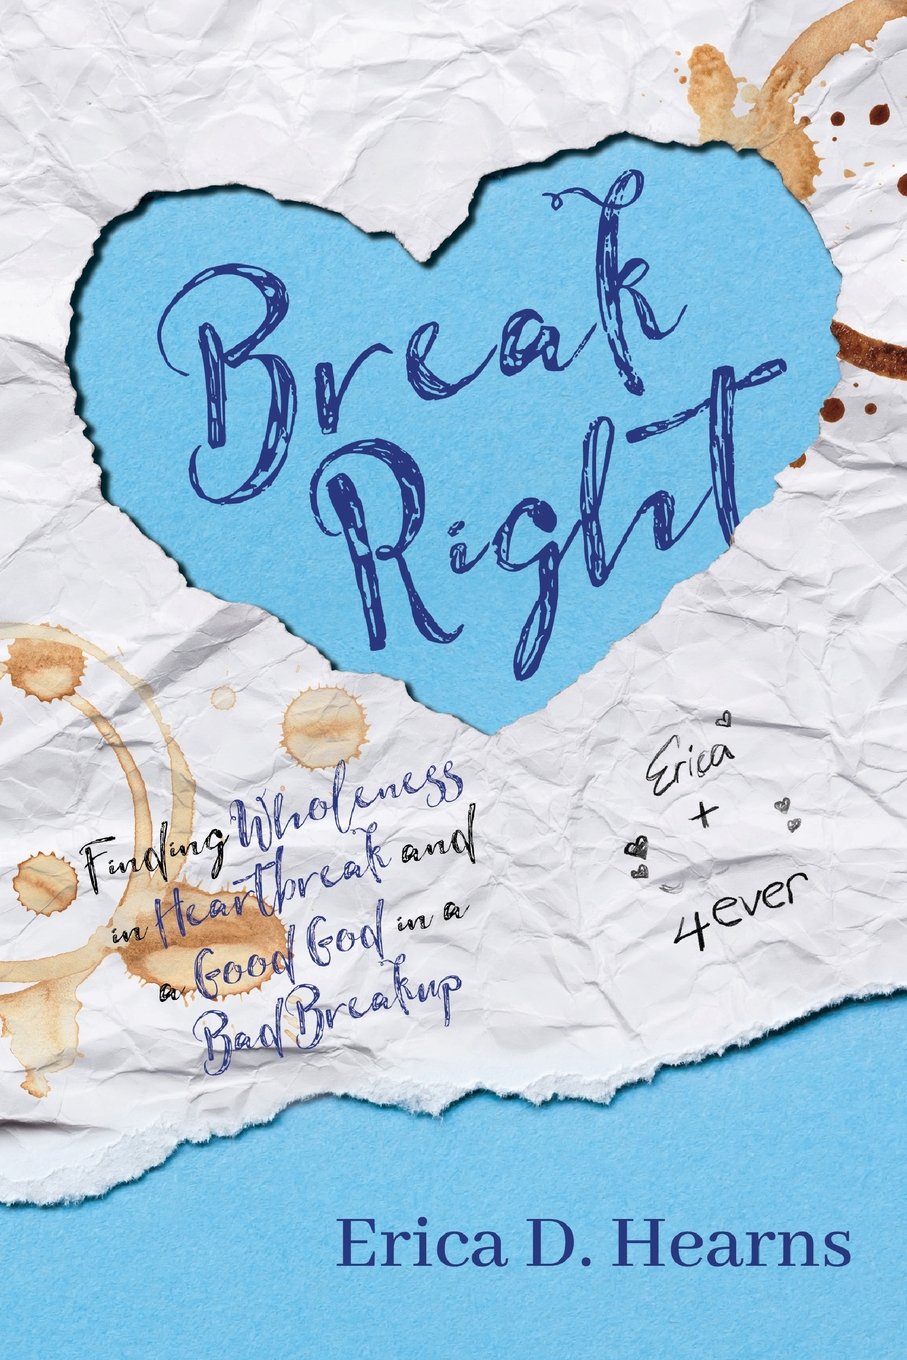 Break
Right
Finding Wholeness
in Heartbreak and
a Good God in a
Bad Breakup
Erica
+
4ever
Erica D. Hearns